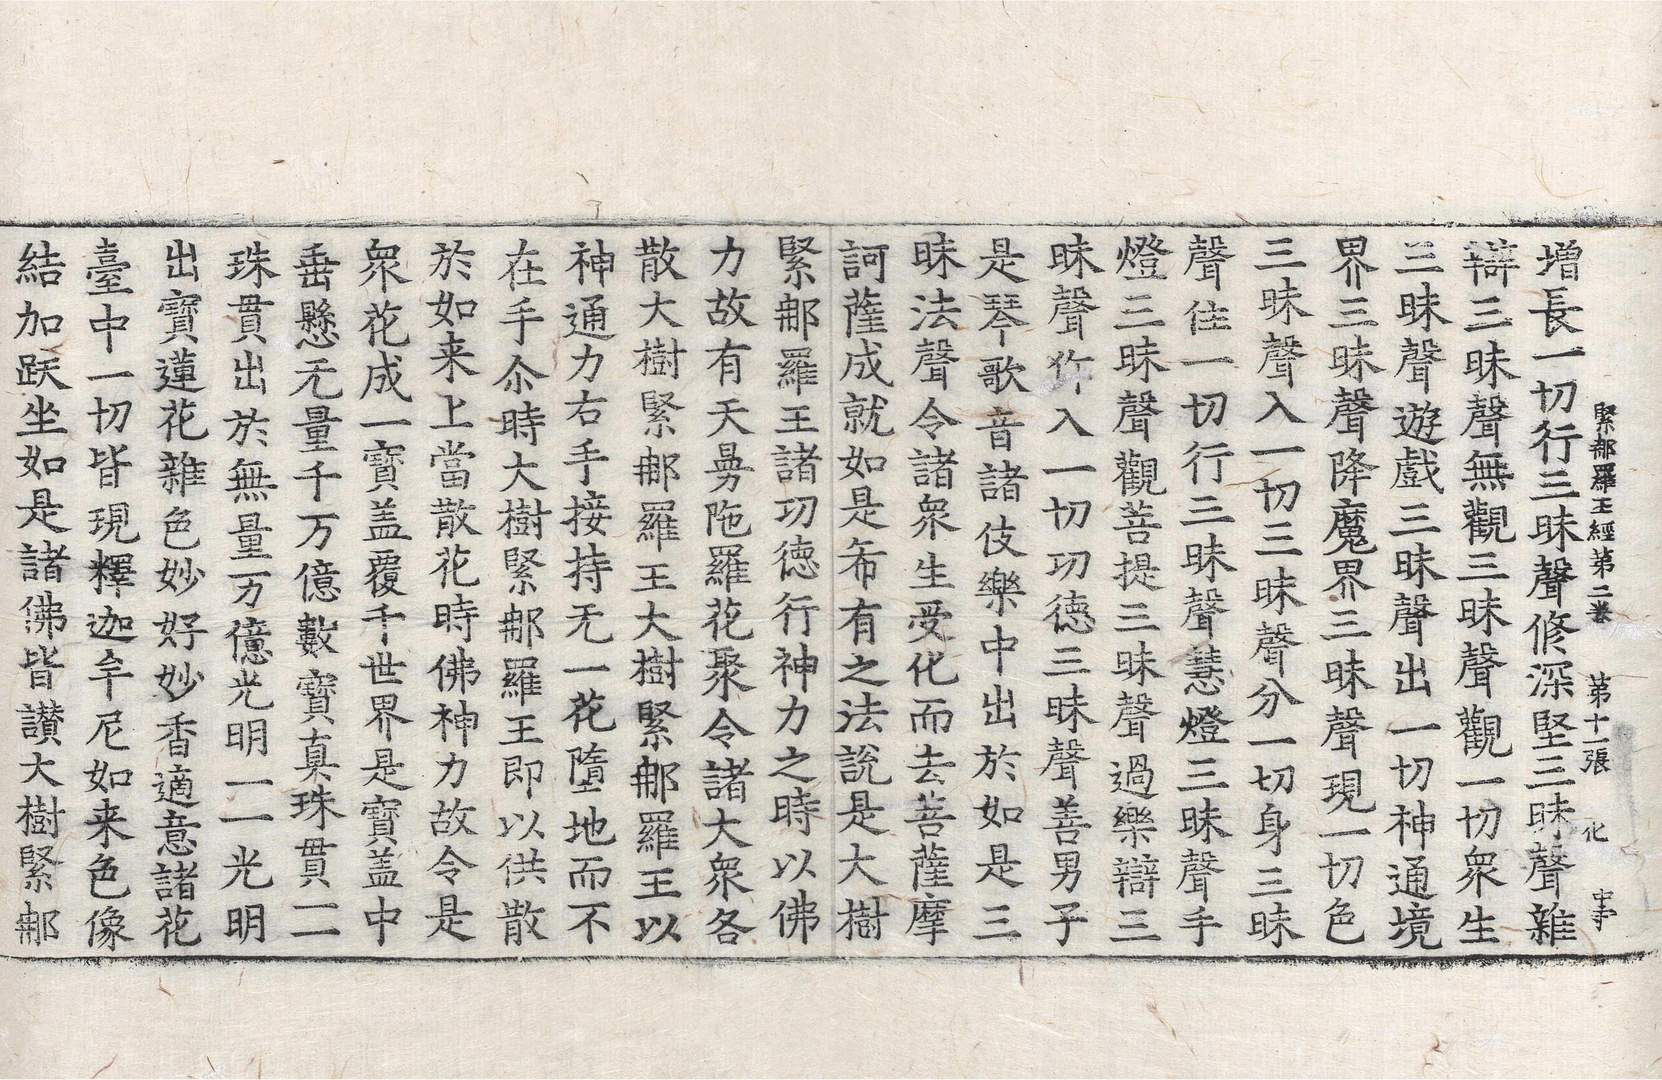 緊那羅王經第二卷 第十一張 化
增長一切行三昧聲修深堅三昧聲雜
辯三昧聲無觀三昧聲觀一切衆生
三昧聲遊戲三昧聲出一切神通境
界三昧聲降魔界三昧聲現一切色
三昧聲入一切三昧聲分一切身三昧
聲住一切行三昧聲慧燈三昧聲手
燈三昧聲觀菩提三昧聲過樂辯三
昧聲祚入一切功德三昧聲善男子
是琴歌音諸伎樂中出於如是三
昧法聲令諸衆生受化而去菩薩摩
訶薩成就如是希有之法說是大樹
緊那羅王諸功德行神力之時以佛
力故有天曼陁羅花聚令諸大衆各
散大樹緊那羅王大樹緊那羅王以
神通力右手接持无一花墮地而不
在手尒時大樹緊那羅王即以供散
於如来上當散花時佛神力故令是
衆花成一寶盖覆千世界是寶盖中
垂懸无量千万億數寶真珠貫一一
珠貫出於無量万億光明一一光明
出寶蓮花雜色妙好妙香適意諸花
臺中一切皆現釋迦牟尼如来色像
結加趺坐如是諸佛皆讃大樹緊那